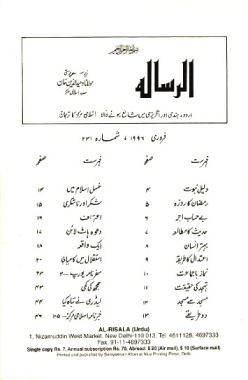 الرسالہ
اردو، ہندی اور انگریزی میں شائع ہونے والا اسلامی مرکز کا ترجمان
فروری ۱۹۹۶، شمارہ ۲۳۱
فہرست صفحہ فہرست صفحہ
دلیل نبوت ۴ غسل اسلام میں ۱۴
رمضان کا روزہ ۵ شکر اور ناشکری ۱۵
بے حساب اجر ۶ اعتراف ۱۶
حدیث کا مطالعہ ۷ دعوہ ہاٹ لائن ۱۷
بہتر انسان ۸ ایک واقعہ ۱۸
اعتدال کا طریقہ ۹ استقلال میں کامیابی ۲۰
نماز باجماعت ۱۰ سفرنامہ یورپ - ۲ ۲۳
تہجد کی حقیقت ۱۱ سمجھ کی کمی ۴۳
مسجد سے مسجد ۱۲ لیڈری نے تباہ کیا ۴۴
دو طریقے ۱۳ خبرنامہ اسلامی مرکز - ۱۱۰ ۴۶
AL-RISALA (Urdu)
1, Nizamuddin West Market, New Delhi-110 013, Tel. 4611128, 4697333
Fax: 91-11-4697333
Single copy Rs. 7, Annual subscription Rs. 70, Abroad: $ 20 (Air mail), $ 10 (Surface mail)
Printed and published by Saniyasnain Khan at Nice Printing Press, Delhi